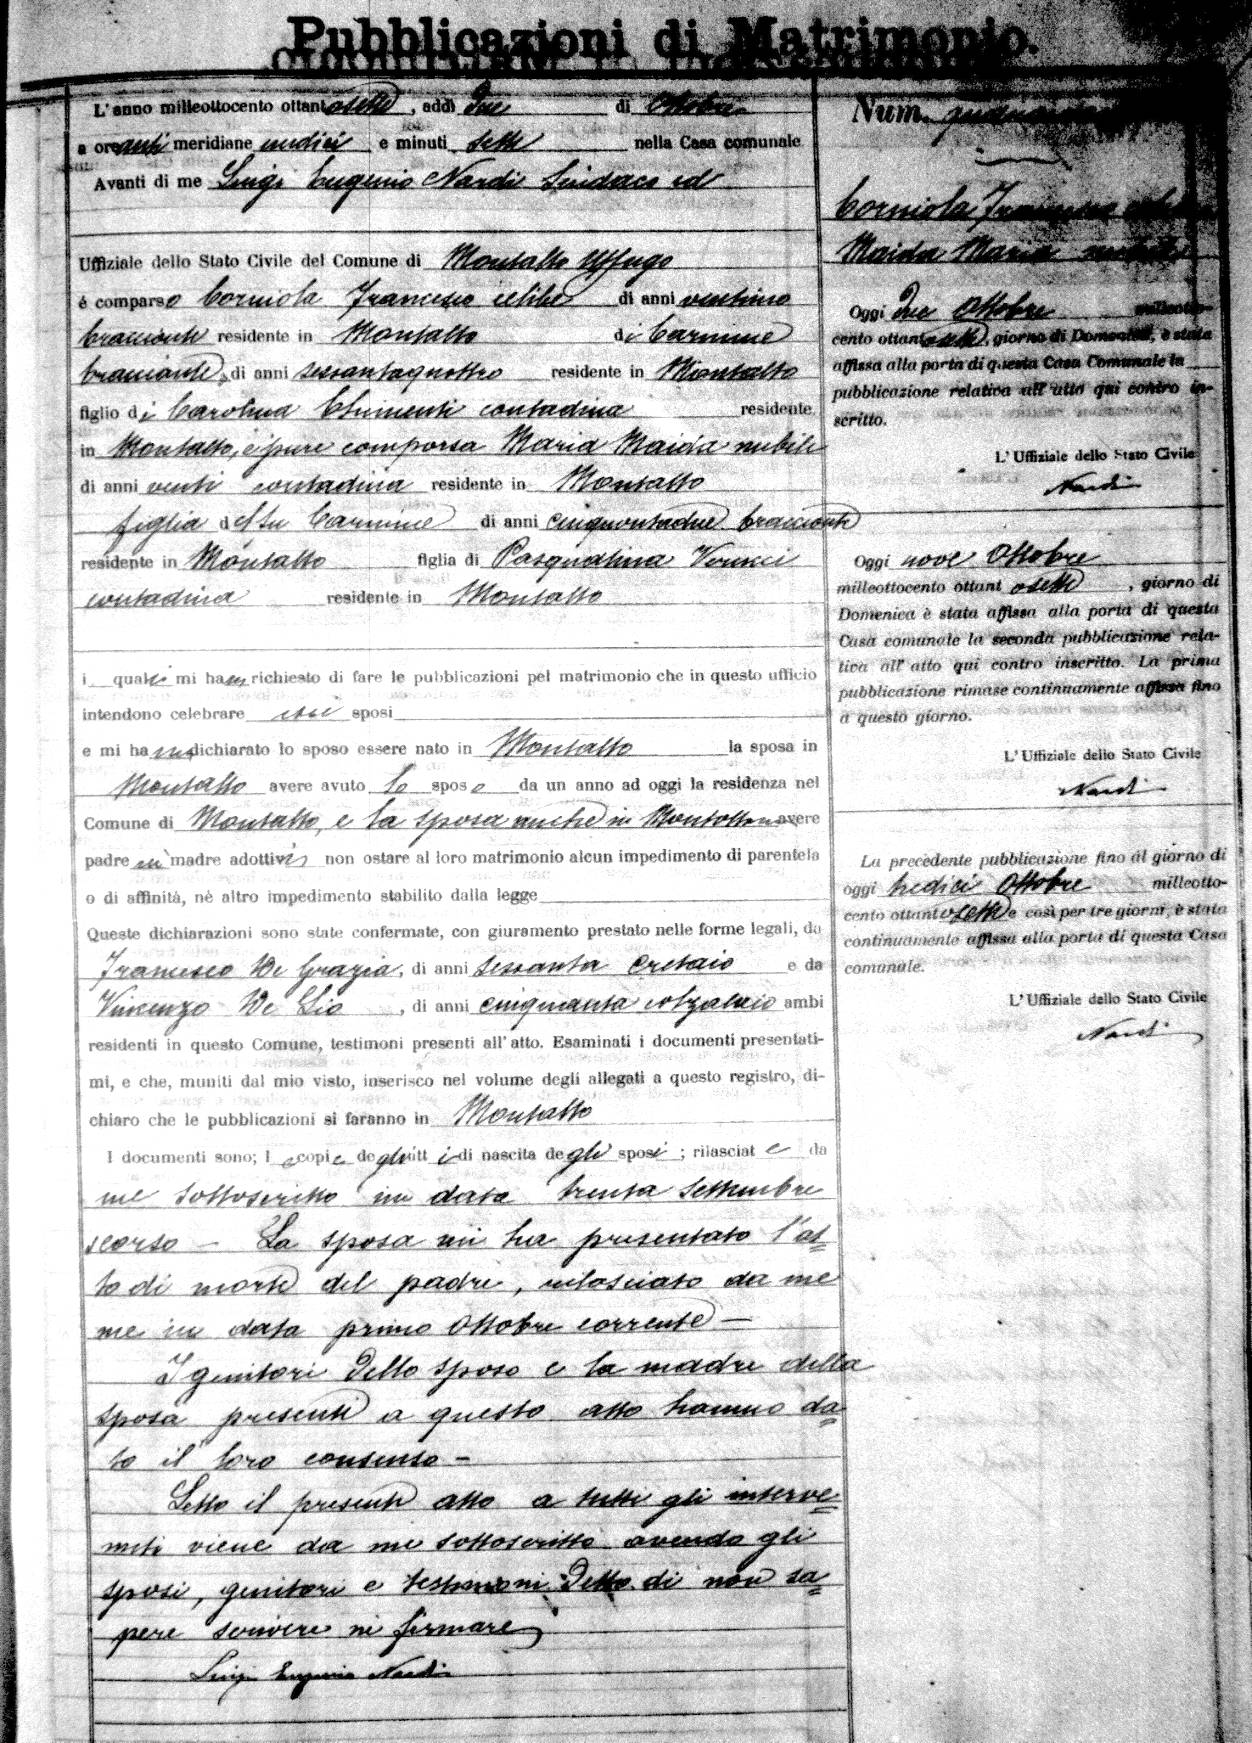 Pubblicazioni di Matrimonio.
L'anno milleottocento ottantasette, addì due di Ottobre
a ore anti meridiane undici e minuti sette nella Casa comunale
Avanti di me Luigi Eugenio Nardi Sindaco ed
Uffiziale dello Stato Civile del Comune di Montalto Uffugo
é comparso Corniola Francesco celibe di anni ventuno
bracciante residente in Montalto di Carmine
braciante, di anni sessantaquattro residente in Montalto
figlio di Carolina Chimenti contadina residente
in Montalto, è pure comparsa Maria Maida nubile
di anni venti contadina residente in Montalto
figlia del fu Carmine di anni cinquantadue bracciante
residente in Montalto figlia di Pasqualina
contadina residente in Montalto
i quali mi han richiesto di fare le pubblicazioni pel matrimonio che in questo ufficio
intendono celebrare essi sposi
e mi ha dichiarato lo sposo essere nato in Montalto la sposa in
Montalto avere avuto lo sposo da un anno ad oggi la residenza nel
Comune di Montalto, e la sposa anche in Montalto avere
padre nì madre adottivi non ostare al loro matrimonio alcun impedimento di parentela
o di affinità, nè altro impedimento stabilito dalla legge
Queste dichiarazioni sono state confermate, con giuramento prestato nelle forme legali, da
Francesco De Grazia, di anni sessanta cretaio e da
Vincenzo De Lio, di anni cinquanta colzalaio ambi
residenti in questo Comune, testimoni presenti all'atto. Esaminati i documenti presentati-
mi, e che, muniti dal mio visto, inserisco nel volume degli allegati a questo registro, di-
chiaro che le pubblicazioni si faranno in Montalto
I documenti sono; l e copie degli atti di nascita degli sposi; rilasciate da
me sottoscritto in data trenta Settembre
scorso – La sposa mi ha presentato l'at=
to di morte del padre, rilasciato da me
me in data primo Ottobre corrente –
I genitori dello sposo e la madre della
sposa presenti a questo atto hanno da=
to il loro consenso –
Letto il presente atto a tutti gli interve=
nuti viene da me sottoscritto avendo gli
sposi, genitori e testimoni detto di non sa=
pere scrivere nì firmare
Luigi Eugenio Nardi
Num.
Corniola Francesco
Maida Maria
Oggi due Ottobre milleotto-
cento ottantasette, giorno di Domenica, è stata
affissa alla porta di questa Casa Comunale la
pubblicazione relativa all'atto qui contro in-
scritto.
L'Uffiziale dello Stato Civile
Nardi
Oggi nove Ottobre
milleottocento ottantasette, giorno di
Domenica è stata affissa alla porta di questa
Casa comunale la seconda pubblicazione rela-
tiva all'atto qui contro inscritto. La prima
pubblicazione rimase continuamente affissa fino
a questo giorno.
L'Uffiziale dello Stato Civile
Nardi
La precedente pubblicazione fino al giorno di
oggi tredici Ottobre milleotto-
cento ottantasette e così per tre giorni, è stata
continuamente affissa alla porta di questa Casa
comunale.
L'Uffiziale dello Stato Civile
Nardi